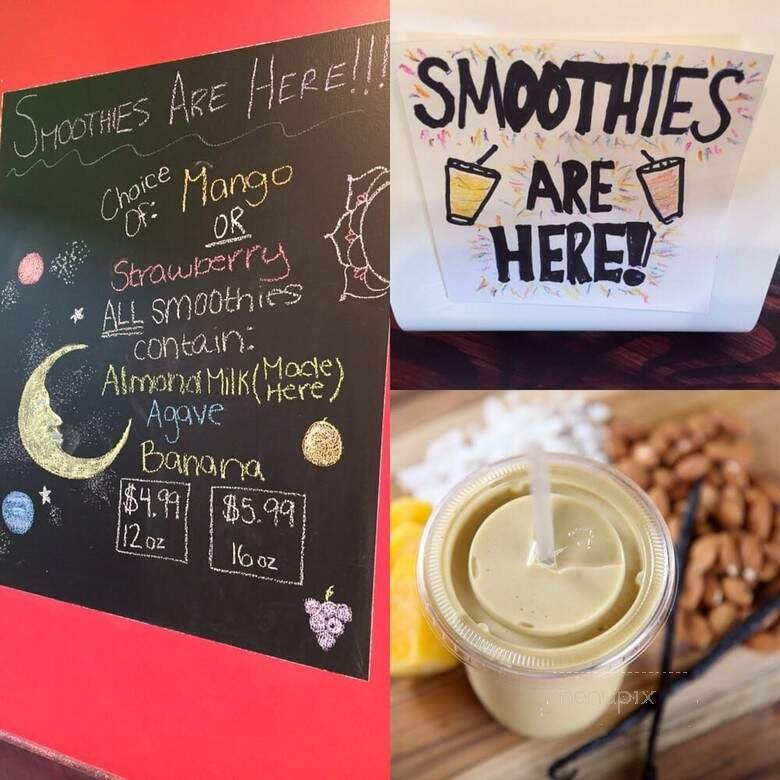 SMOOTHIES ARE HERE!!!
Choice Of: Mango
OR
Strawberry
ALL smoothies
contain:
Almond Milk (Made Here)
Agave
Banana
$4.99
12 oz
$5.99
16 oz
SMOOTHIES
ARE
HERE!!
menupix